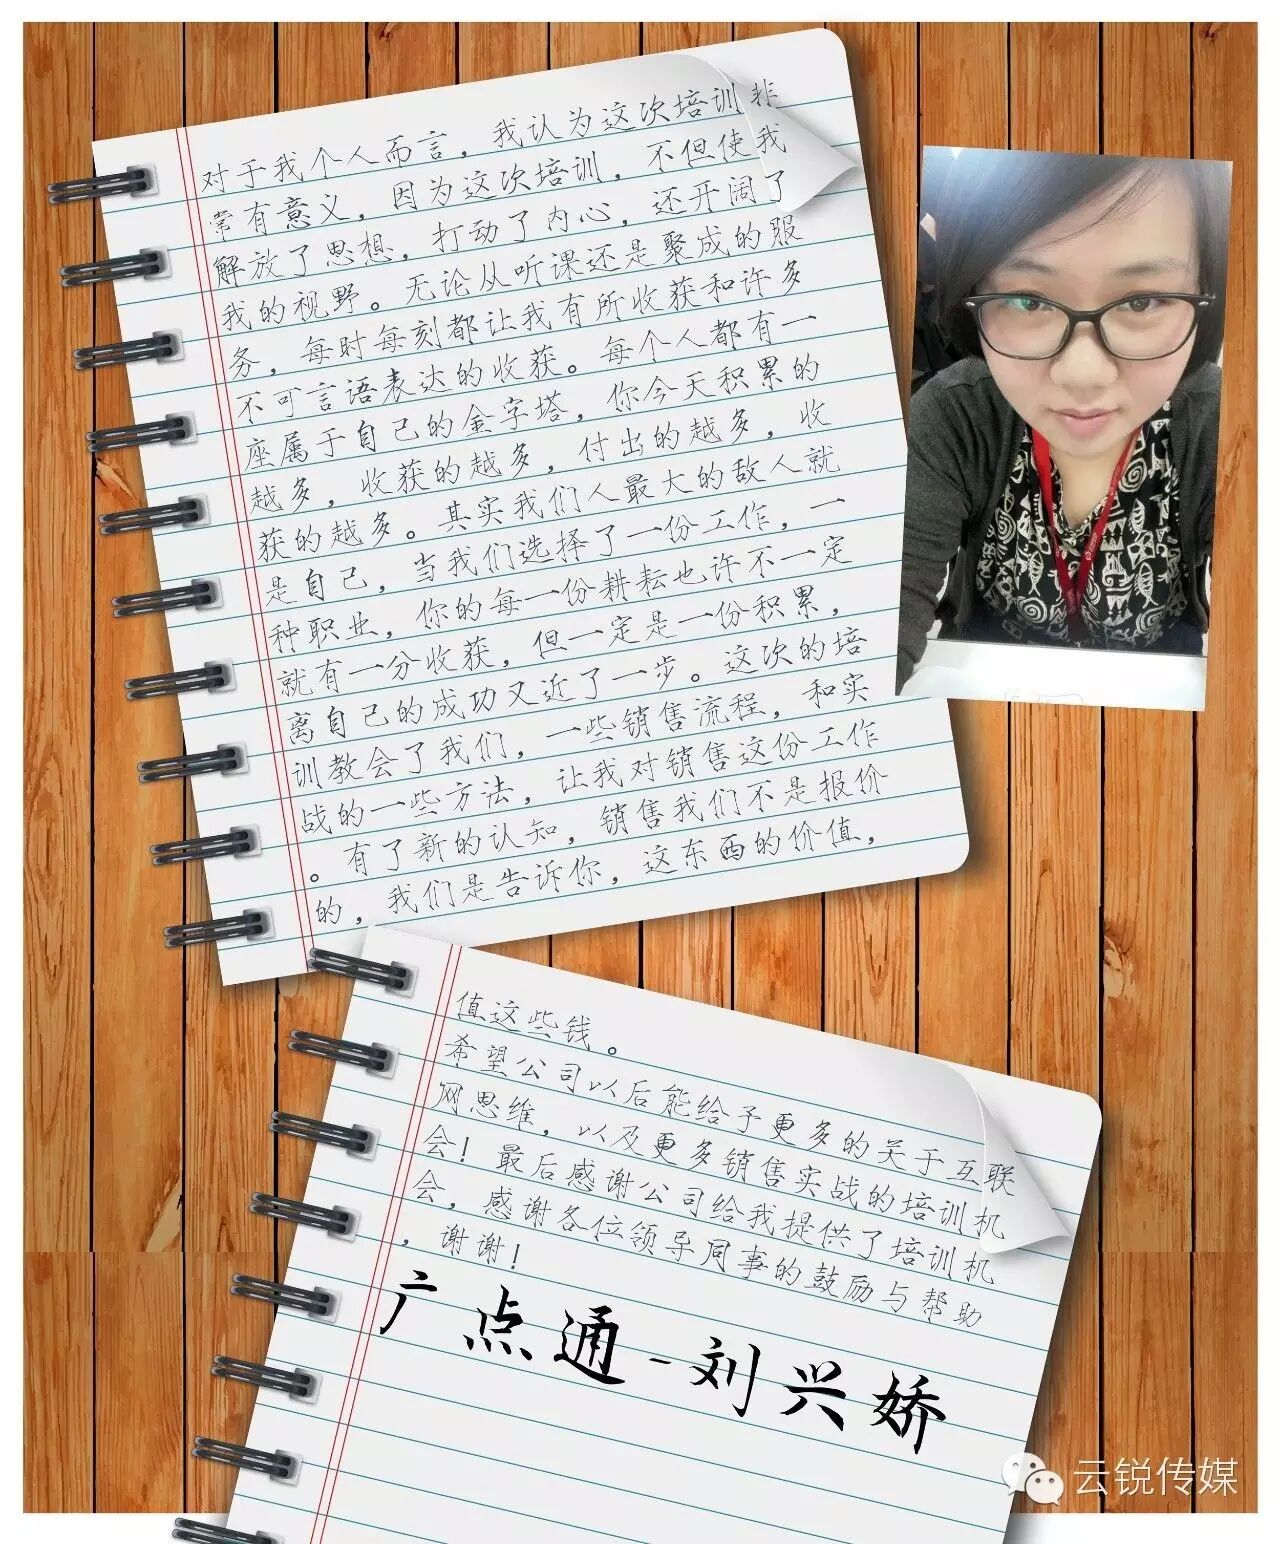 对于我个人而言，我认为这次培训非
常有意义，因为这次培训，不但使我
解放了思想，打动了内心，还开阔了
我的视野。无论从听课还是聚成的服
务，每时每刻都让我有所收获和许多
不可言语表达的收获。每个人都有一
座属于自己的金字塔，你今天积累的
越多，收获的越多，付出的越多，收
获的越多。其实我们人最大的敌人就
是自己，当我们选择了一份工作，一
种职业，你的每一份耕耘也许不一定
就有一分收获，但一定是一份积累，
离自己的成功又近了一步。这次的培
训教会了我们，一些销售流程，和实
战的一些方法，让我对销售这份工作
。有了新的认知，销售我们不是报价
的，我们是告诉你，这东西的价值，
值这些钱。
希望公司以后能给予更多的关于互联
网思维，以及更多销售实战的培训机
会！最后感谢公司给我提供了培训机
会，感谢各位领导同事的鼓励与帮助
，谢谢！
广点通-刘兴娇
云锐传媒